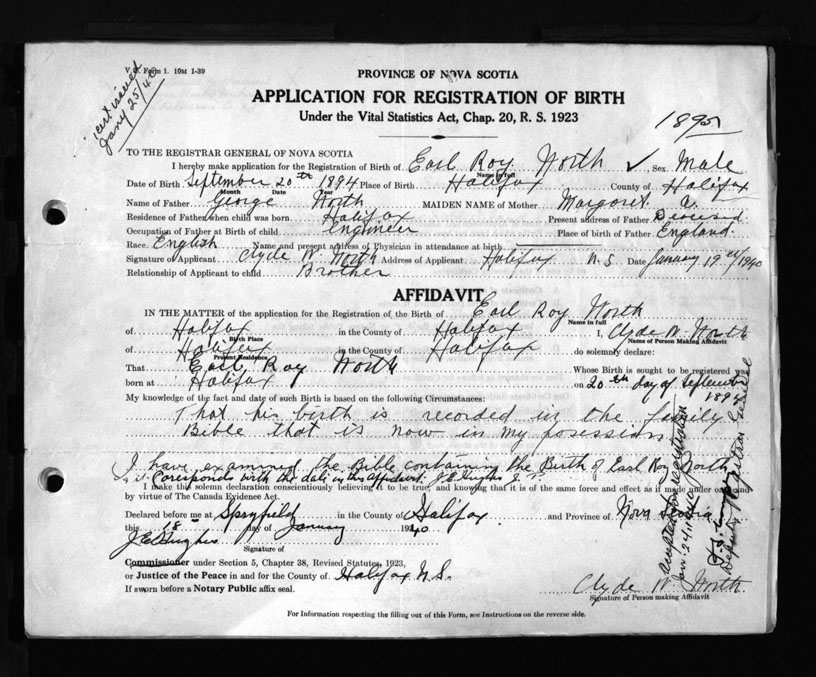 V. S. Form 1. 10M 1-39
cert issued
Jany 25/40
PROVINCE OF NOVA SCOTIA
APPLICATION FOR REGISTRATION OF BIRTH
Under the Vital Statistics Act, Chap. 20, R. S. 1923
1895
TO THE REGISTRAR GENERAL OF NOVA SCOTIA
I hereby make application for the Registration of Birth of Earl Roy North ✓, Sex Male
Name in full
Date of Birth September 20th 1894 Place of Birth Halifax County of Halifax
Month Date Year
Name of Father George North MAIDEN NAME of Mother Margaret A.
Residence of Father when child was born. Halifax Present address of Father Deceased
Occupation of Father at Birth of child Engineer Place of birth of Father. England.
Race. English Name and present address of Physician in attendance at birth
Signature of Applicant Clyde W. North Address of Applicant Halifax N.S. Date January 19th/1940
Relationship of Applicant to child Brother
AFFIDAVIT
IN THE MATTER of the application for the Registration of the Birth of Earl Roy North
Name in full
of Halifax in the County of Halifax I, Clyde W. North
Birth Place Name of Person Making Affidavit
of Halifax in the County of Halifax do solemnly declare:
Present Residence
That Earl Roy North Whose Birth is sought to be registered was
born at Halifax on 20th day of September
1894
My knowledge of the fact and date of such Birth is based on the following Circumstances:
That his birth is recorded in the family
Bible that is now in my posession
I have examined the Bible containing the Birth of Earl Roy North
& it Coresponds with the date in this Affidavit. J.E. Hughes J.P.
I make this solemn declaration conscientiously believing it to be true, and knowing that it is of the same force and effect as if made under oath and
by virtue of The Canada Evidence Act.
Declared before me at Spryfield in the County of Halifax and Province of Nova Scotia
this 18 day of January 1940
J E Hughes
Signature of
Commissioner under Section 5, Chapter 38, Revised Statutes, 1923,
or Justice of the Peace in and for the County of Halifax N.S.
If sworn before a Notary Public affix seal.
Clyde W. North
Signature of Person making Affidavit
Accepted for registration
Jan 24/1940
Deputy Registrar General
For Information respecting the filling out of this Form, see Instructions on the reverse side.